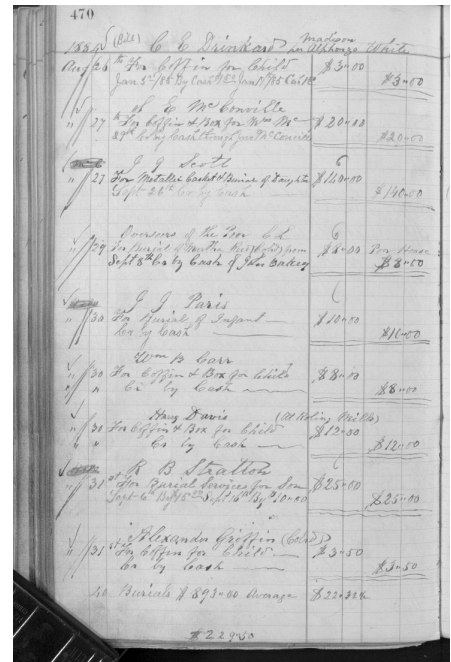 470
1884 (Bill) C E Drinkard per Madison Alphonzo White
Aug 26th For Coffin for Child $3.00
Jan 5th/85 By Cash Jan $3.00
S. E. McConville
" 27 For Coffin & Box for Mrs Mc $20.00
29th Cr by Cash through Jas McConville $20.00
J J Scott
" 27 For Metallic Casket & Burial of Daughter $140.00
Sept 26th Cr by Cash $140.00
Overseers of the Poor C L
" 29 For Burial of Martha (Col'd) from Poor House $8.00
Sept 8th Cr by Cash of John Bakery $8.00
J J Paris
" 30 For Burial of Infant $10.00
Cr by Cash $10.00
Wm B Carr
" 30 For Coffin & Box for Child $8.00
" " Cr by Cash $8.00
Davis (At Roling Mills)
" 30 For Coffin & Box for Child $12.00
" " Cr by Cash $12.00
R B Stratton
" 31st For Burial Services for Son $25.00
Sept 6th By $15.00 Sept By $10.00 $25.00
Alexander Griffin (Col'd)
" 31st For Coffin for Child $3.50
Cr by Cash $3.50
40 Burials $893.00 Average $22.32½
$229.50